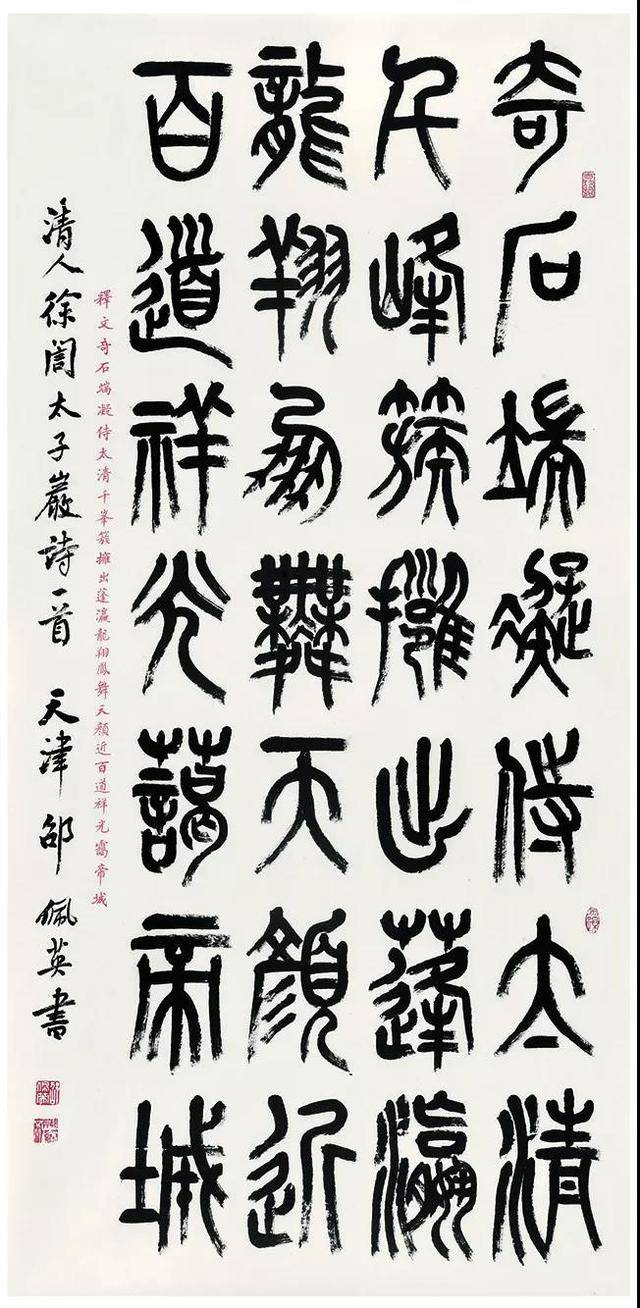 奇石端凝侍太清
千峰簇擁出蓬瀛
龍翔鳳舞天顏近
百道祥光藹帝城
釋文奇石端凝侍太清千峯簇擁出蓬瀛龍翔鳳舞天顏近百道祥光靄帝城
清人徐誾太子巖詩一首 天津邵佩英書